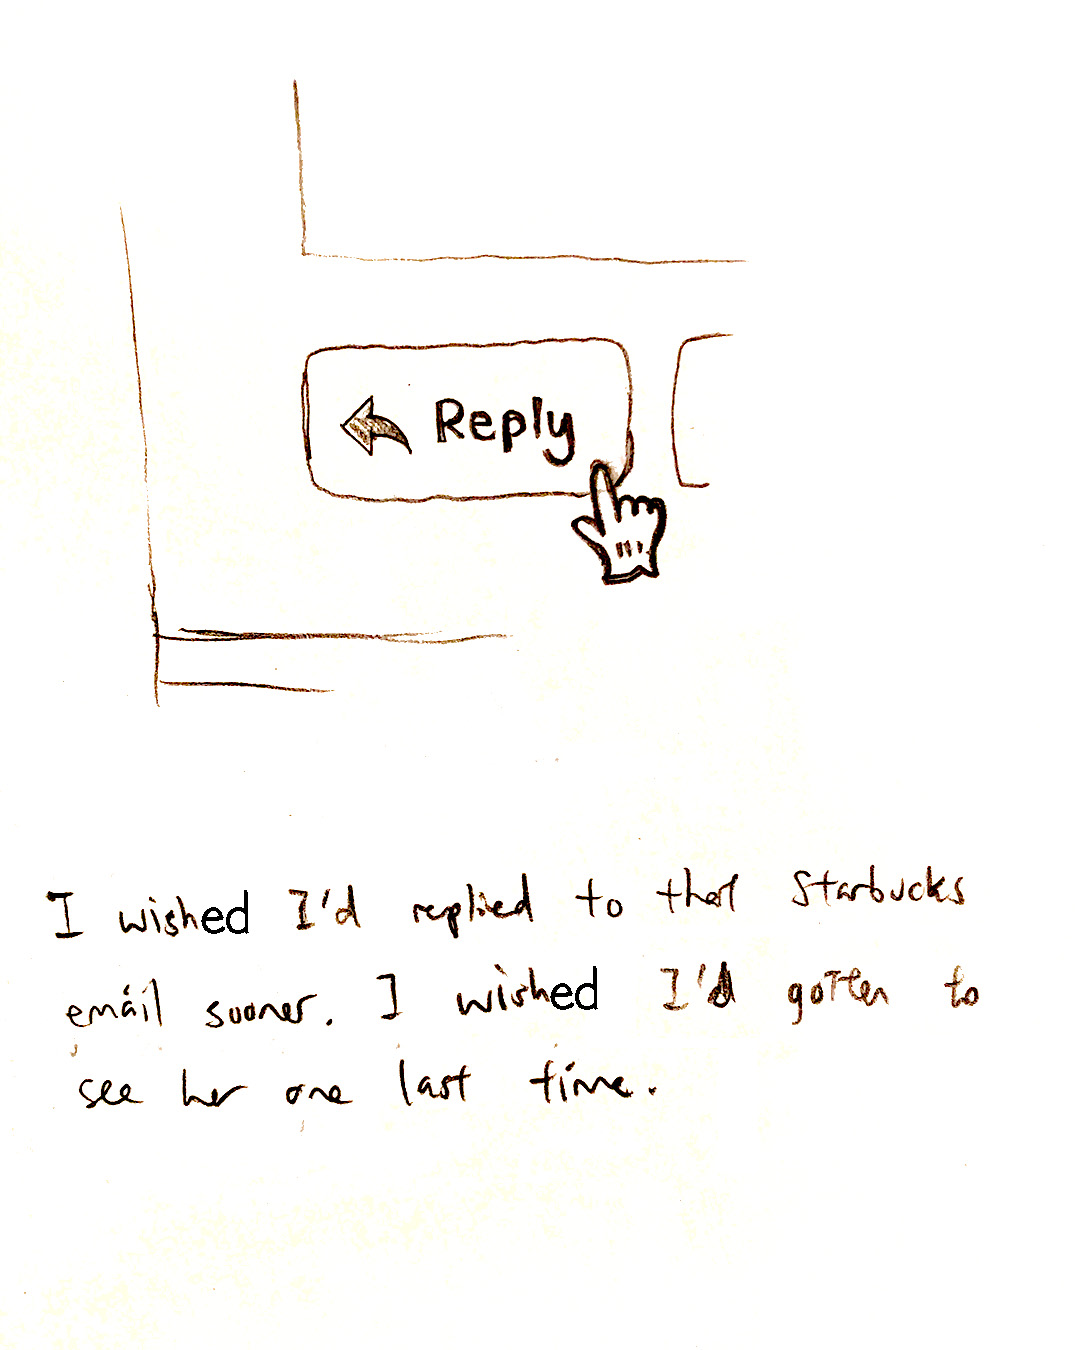 Reply
I wished I'd replied to that Starbucks
email sooner. I wished I'd gotten to
see her one last time.